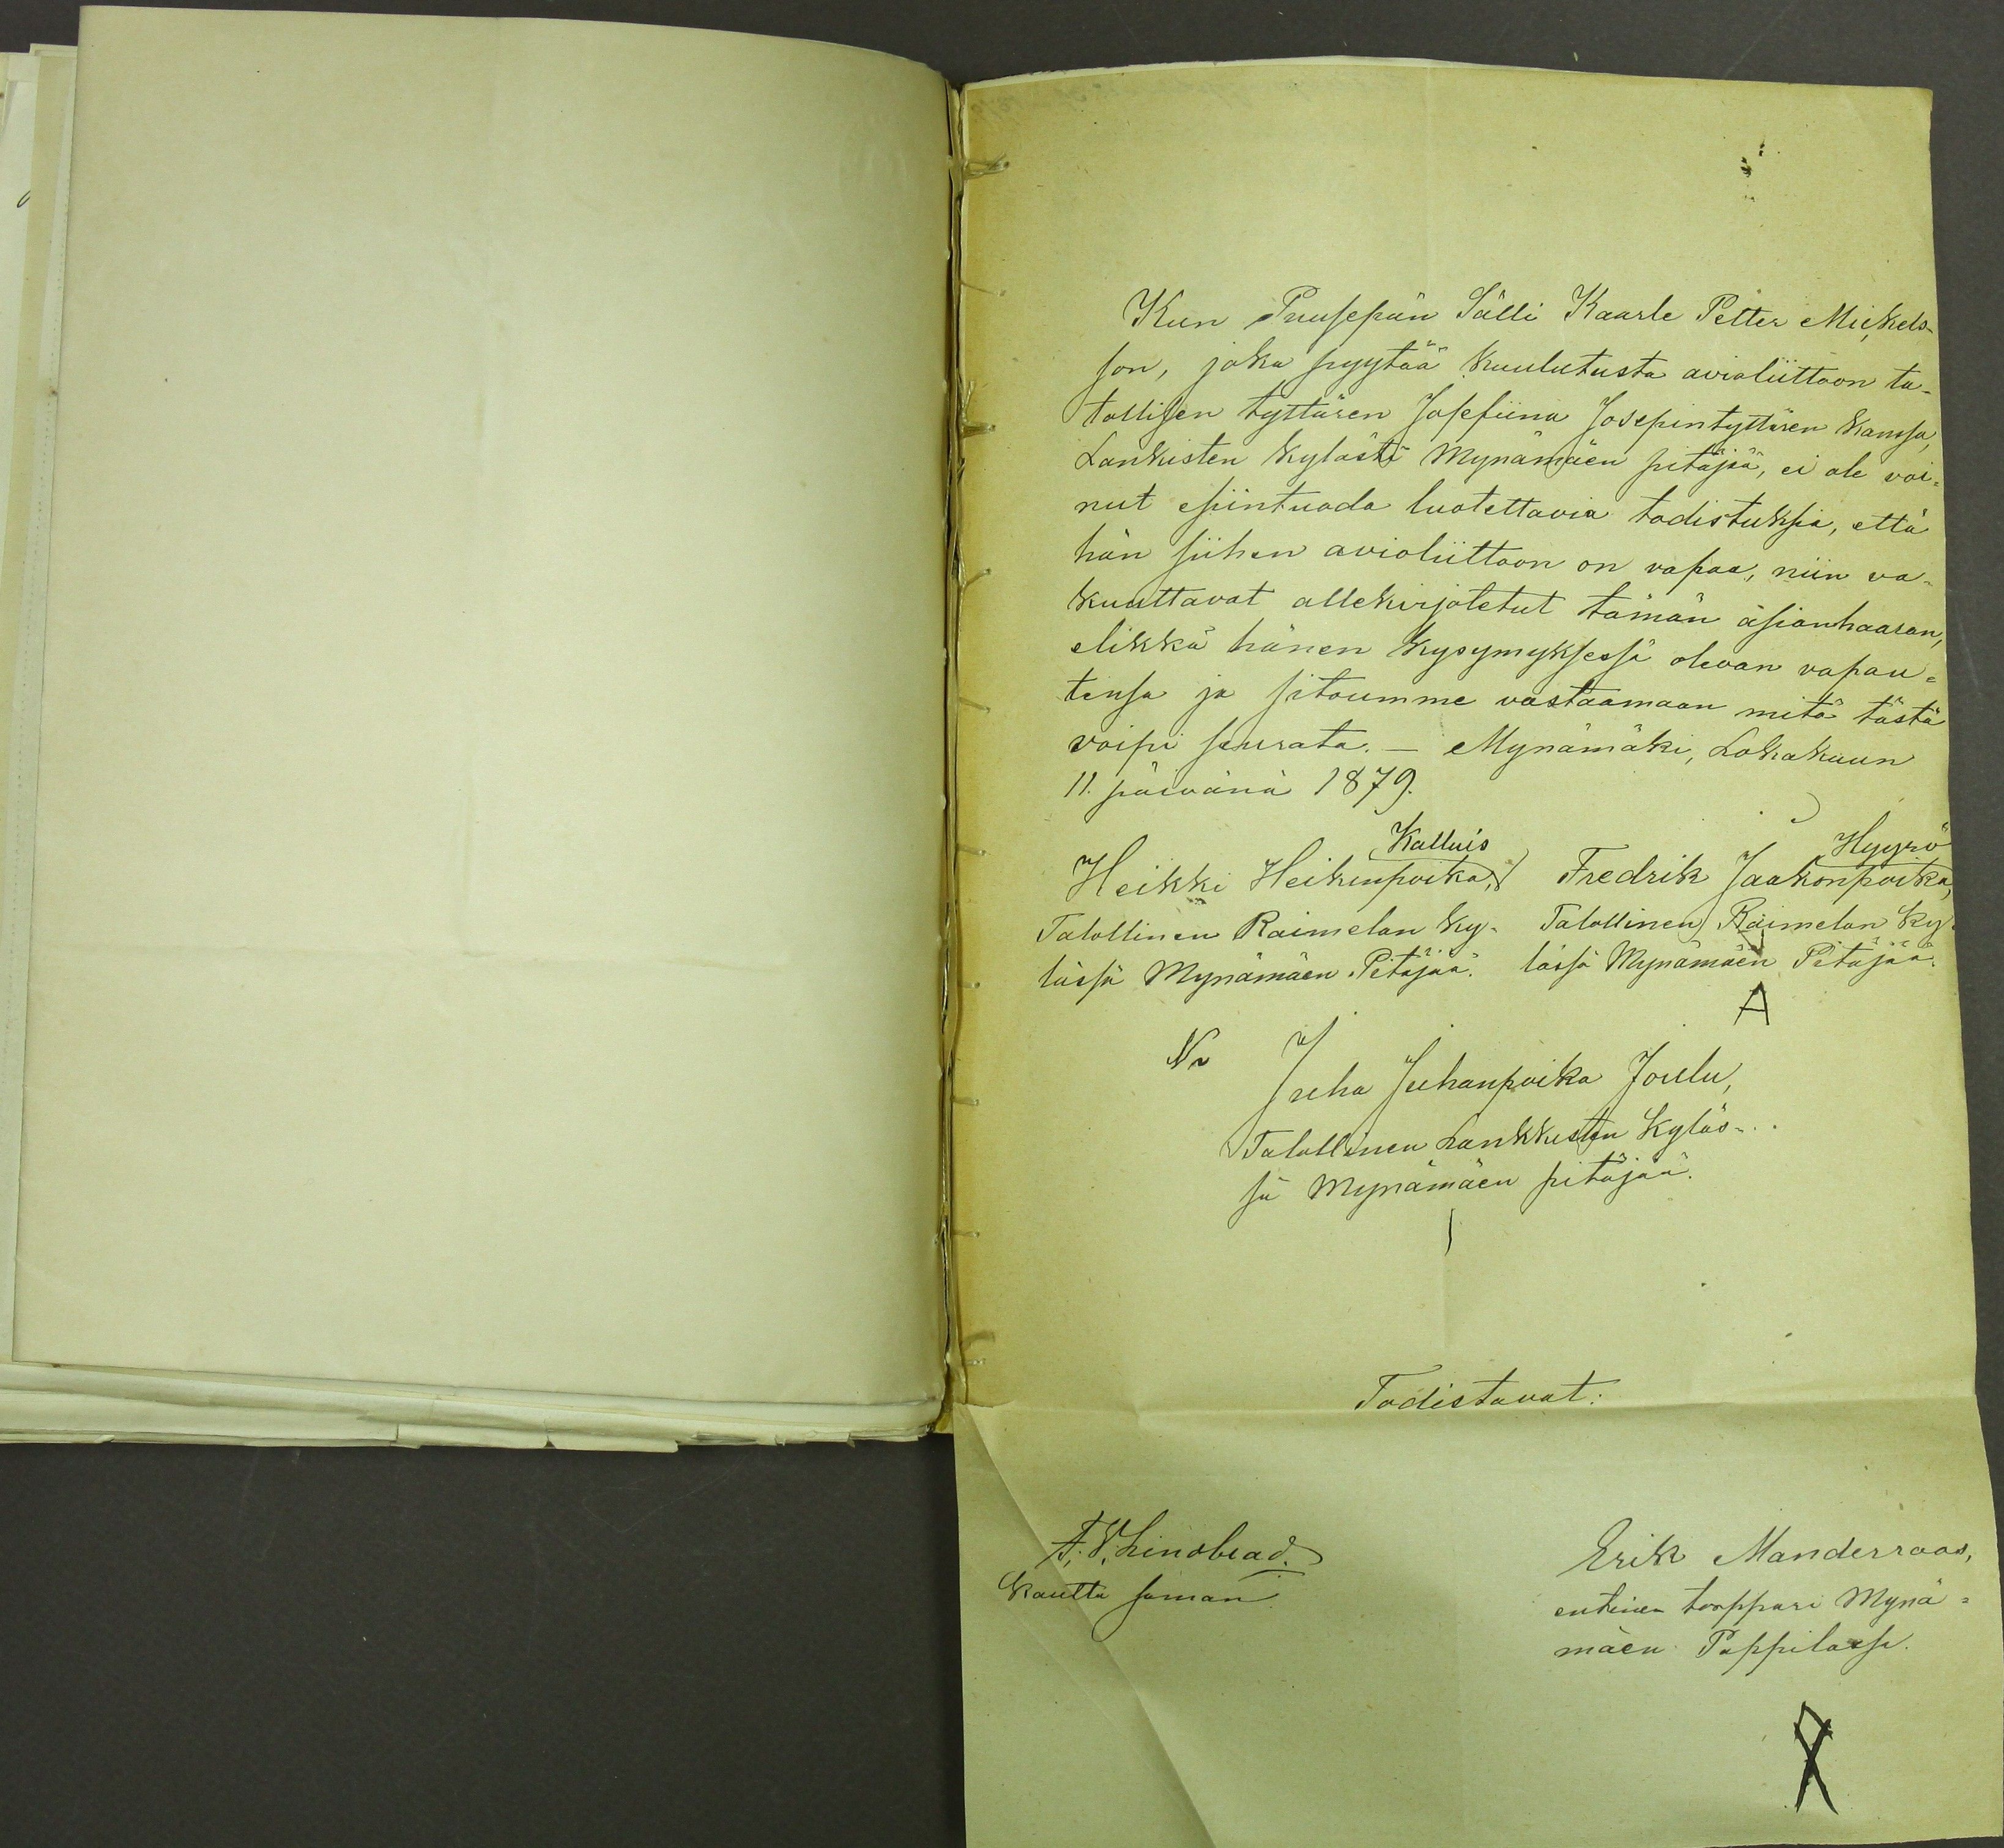 Kun Puusepän Sälli Kaarle Petter Mickels-
son, joka pyytää kuulutusta avioliittoon ta-
lollisen tyttären Josefiina Josepintyttären kanssa,
Lankisten kylästä Mynämäen pitäjää, ei ole voi-
nut esiintuoda luotettavia todistuksia, että
hän siihen avioliittoon on vapaa, niin va-
kuuttavat allekirjotetut tämän asianhaaran,
elikkä hänen kysymyksessä olevan vapau-
tensa ja sitoumme vastaamaan mitä tästä
voipi seurata. — Mynämäki, Lokakuun
11. päivänä 1879.
Kalluis Hyyrö
Heikki Heikinpoika, Fredrik Jaakonpoika,
Talollinen Raimelan ky- Talollinen Raimelan ky-
lässä Mynämäen Pitäjää. lässä Mynämäen Pitäjää.
A
Juha Juhanpoika Joulu,
Talollinen Lankkisten kyläs-
sä Mynämäen pitäjää.
Todistavat:
F. V. Lindblad. Erik Manderroos,
kautta saman. entinen torppari Mynä-
mäen Pappilassa.